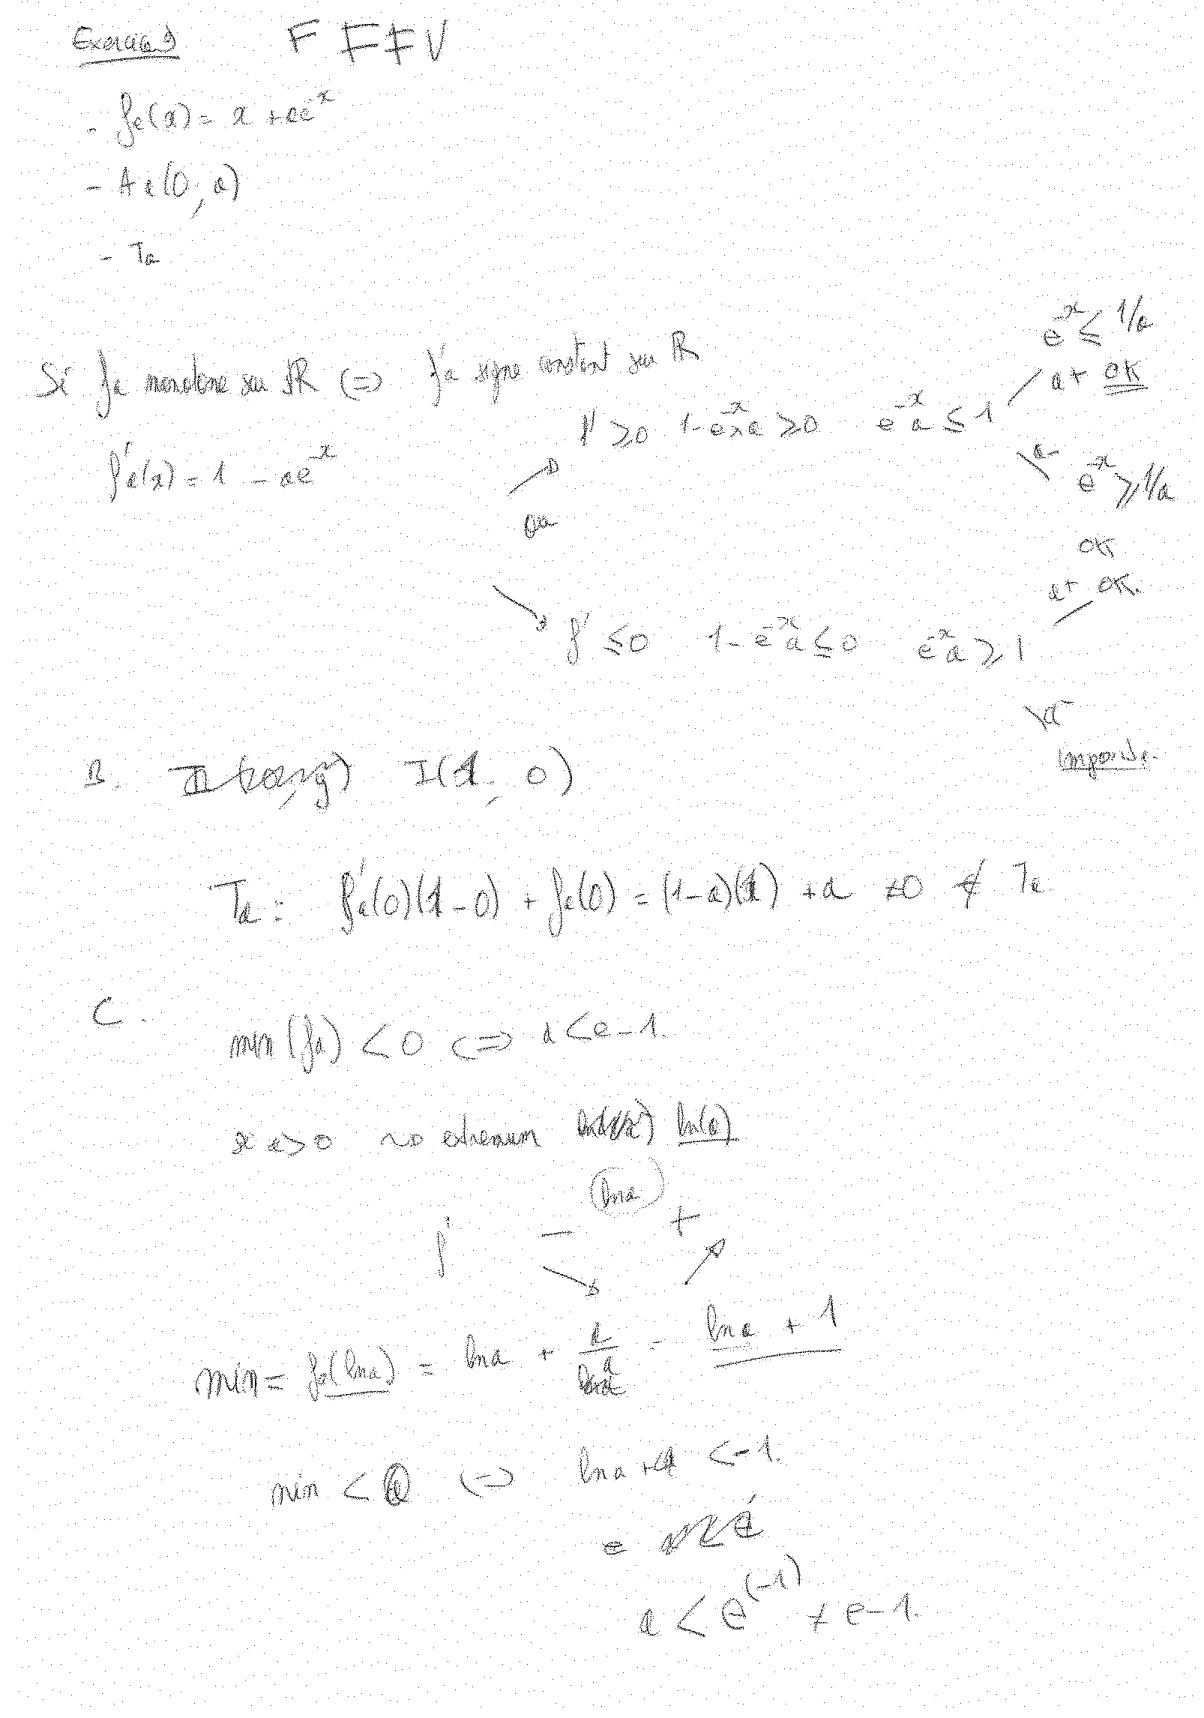 Exercice 9 F F F V
- fa(x) = x + ae^-x
- Aa(0, a)
- Ta
Si fa monotone sur ℝ (=) f'a signe constant sur ℝ
f'a(x) = 1 - ae^-x
f' ≥ 0 1 - e^-x a ≥ 0 e^-x a ≤ 1
e^-x ≤ 1/a
a+ OK
a-
e^-x ≥ 1/a
OK
ou
a+ OK.
f' ≤ 0 1 - e^-x a ≤ 0 e^-x a ≥ 1
a-
impossible.
B. I(1, 0)
Ta : f'a(0)(1-0) + fa(0) = (1-a)(1) + a ≠0 ∉ Ta
C.
min(fa) < 0 (=) a < e-1.
a>0 ~> extremum ln(a)
(lna)
f' - +
min = fa(lna) = lna + a/a = lna + 1
min < 0 (=) lna < -1.
a < e^(-1) ≠ e-1.